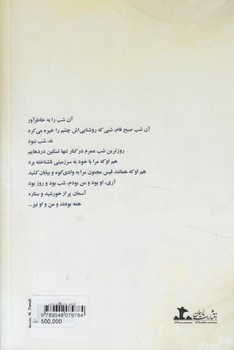 آن شب را به خاطر آور
آن شب صبح فام، شبی که روشنایی‌اش چشم را خیره می‌کرد
نه، شب نبود
روزترین شب عمرم در کنار تنها تسکین دردهایم
هم او که مرا با خود به سرزمینی ناشناخته برد
هم او که همانند قیس مجنون مرا به وادی کوه و بیابان کشید
آری، او بود و من بودم، شب بود و روز بود
آسمان پر از خورشید و ستاره
همه بودند و من و او نیز...
9789548079784
500,000